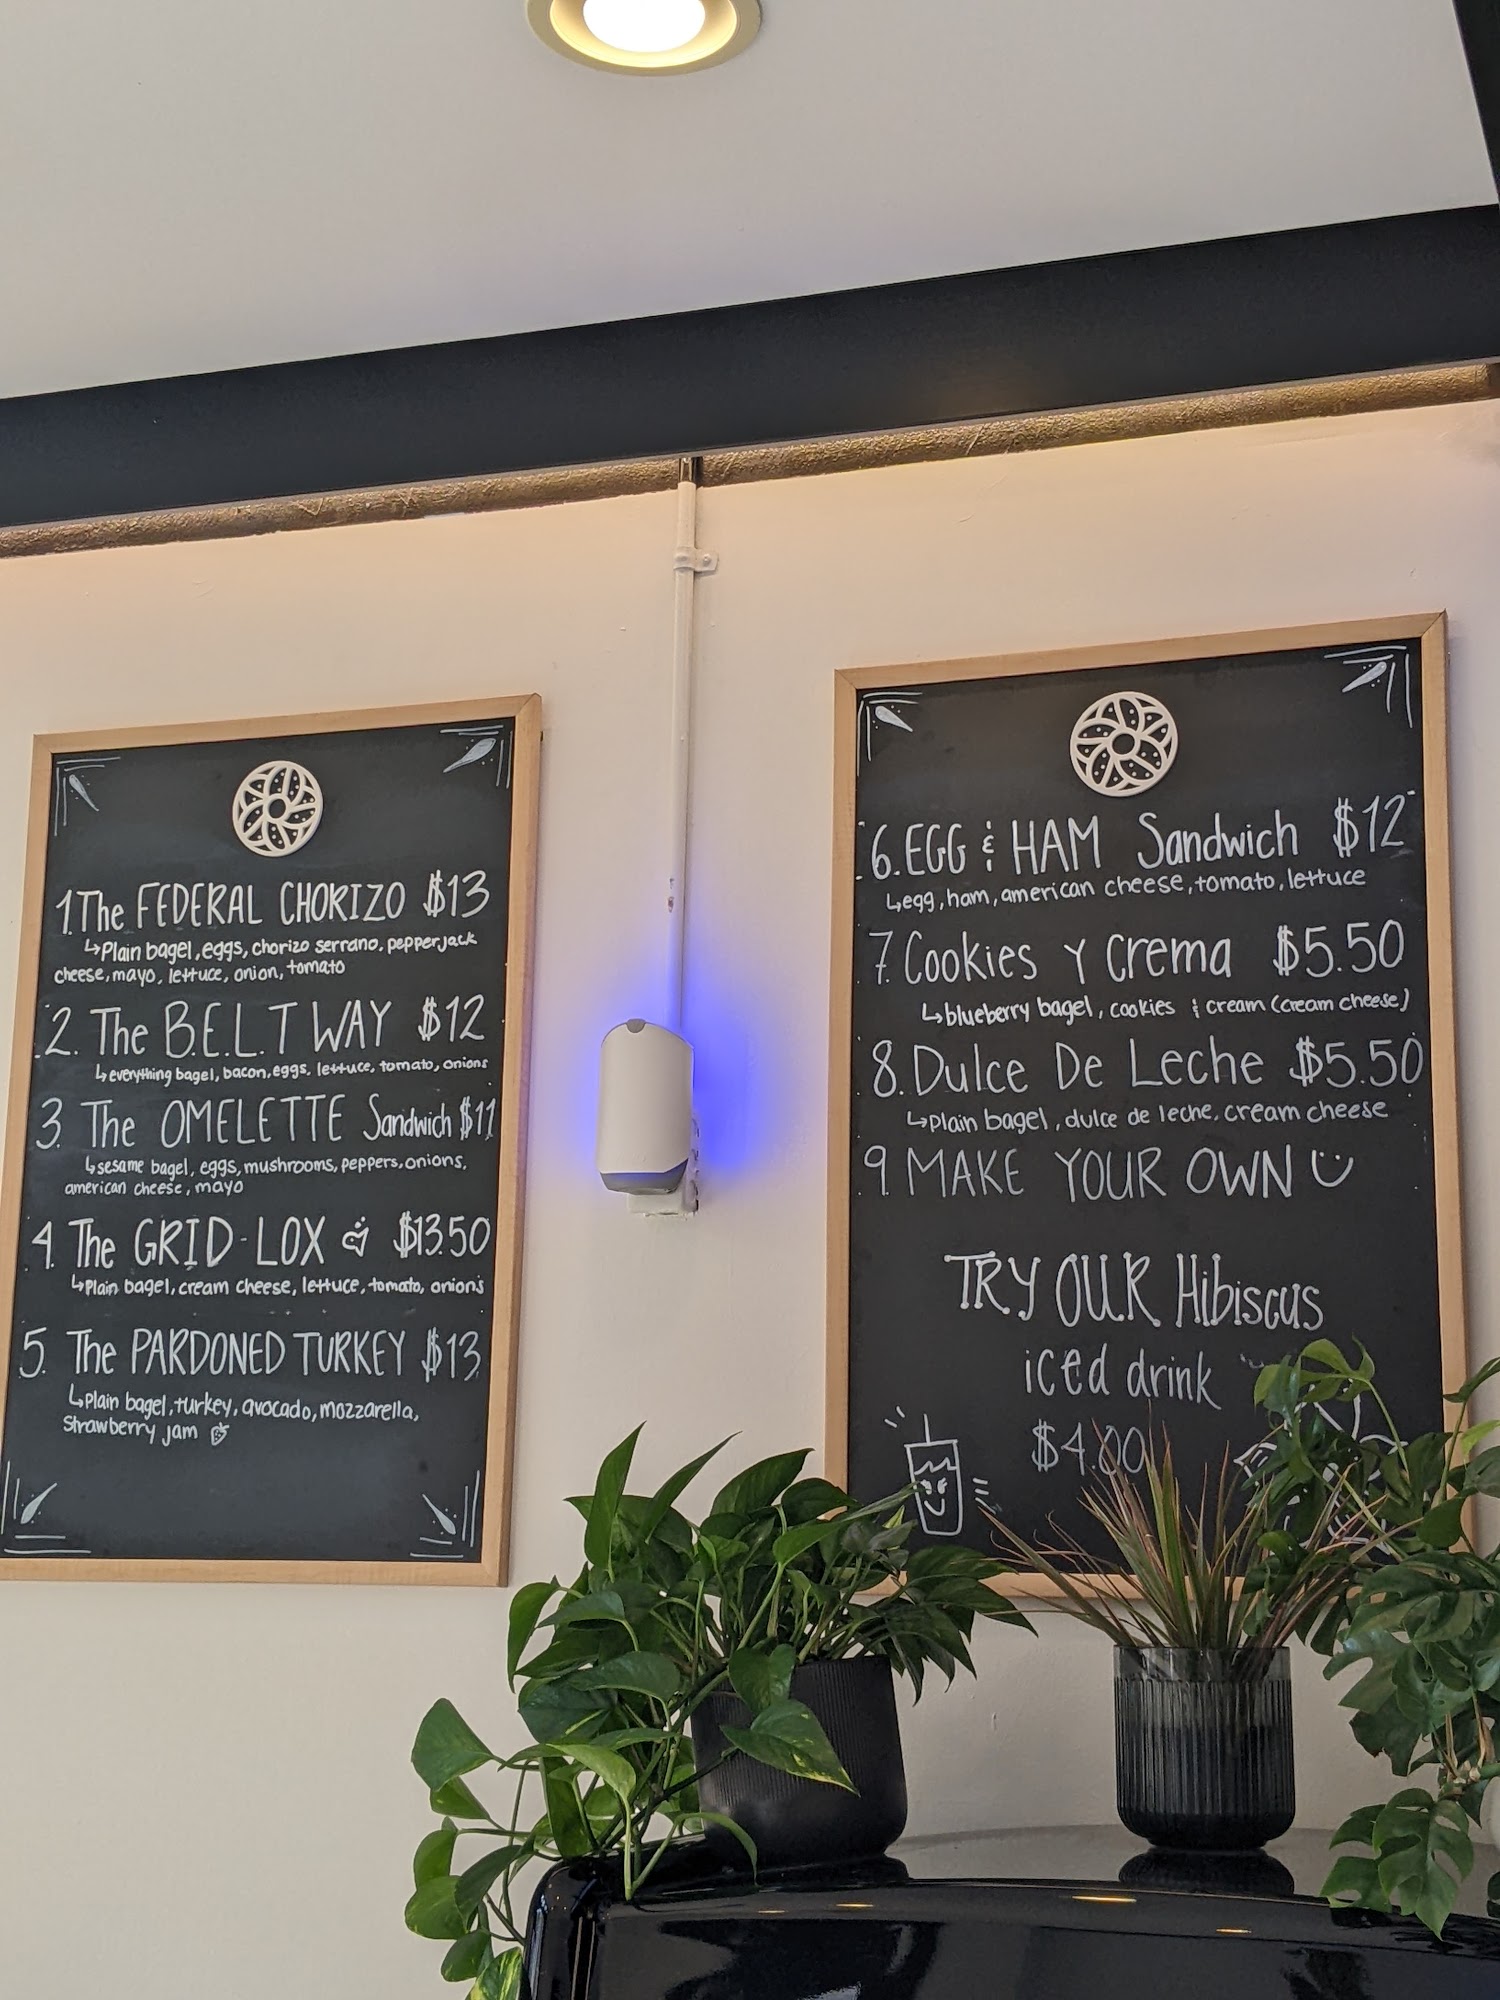 1. The FEDERAL CHORIZO $13
↳Plain bagel, eggs, chorizo serrano, pepperjack
cheese, mayo, lettuce, onion, tomato
2. The B.E.L.T WAY $12
↳everything bagel, bacon, eggs, lettuce, tomato, onions
3. The OMELETTE Sandwich $11
↳sesame bagel, eggs, mushrooms, peppers, onions,
american cheese, mayo
4. The GRID-LOX $13.50
↳Plain bagel, cream cheese, lettuce, tomato, onions
5. The PARDONED TURKEY $13
↳Plain bagel, turkey, avocado, mozzarella,
Strawberry jam
6. EGG & HAM Sandwich $12
↳egg, ham, american cheese, tomato, lettuce
7. Cookies Y Crema $5.50
↳blueberry bagel, cookies & cream (cream cheese)
8. Dulce De Leche $5.50
↳Plain bagel, dulce de leche, cream cheese
9. MAKE YOUR OWN
TRY OUR Hibiscus
iced drink
$4.00